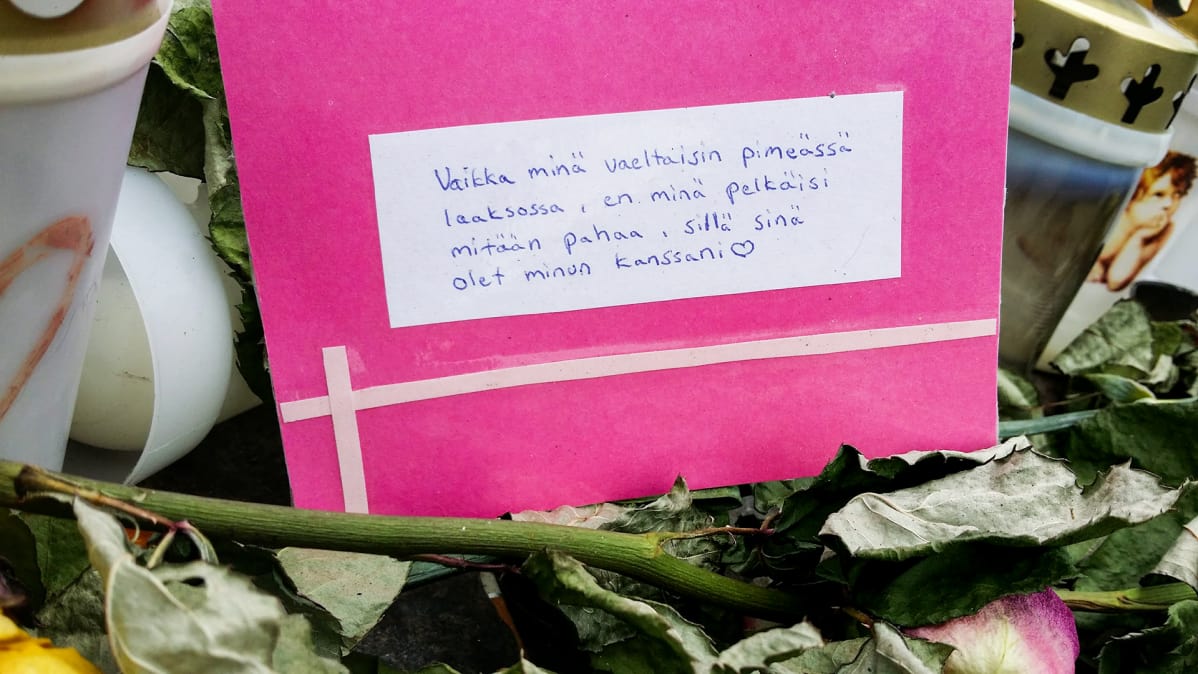 Vaikka minä vaeltaisin pimeässä
laaksossa, en minä pelkäisi
mitään pahaa, sillä sinä
olet minun kanssani♡